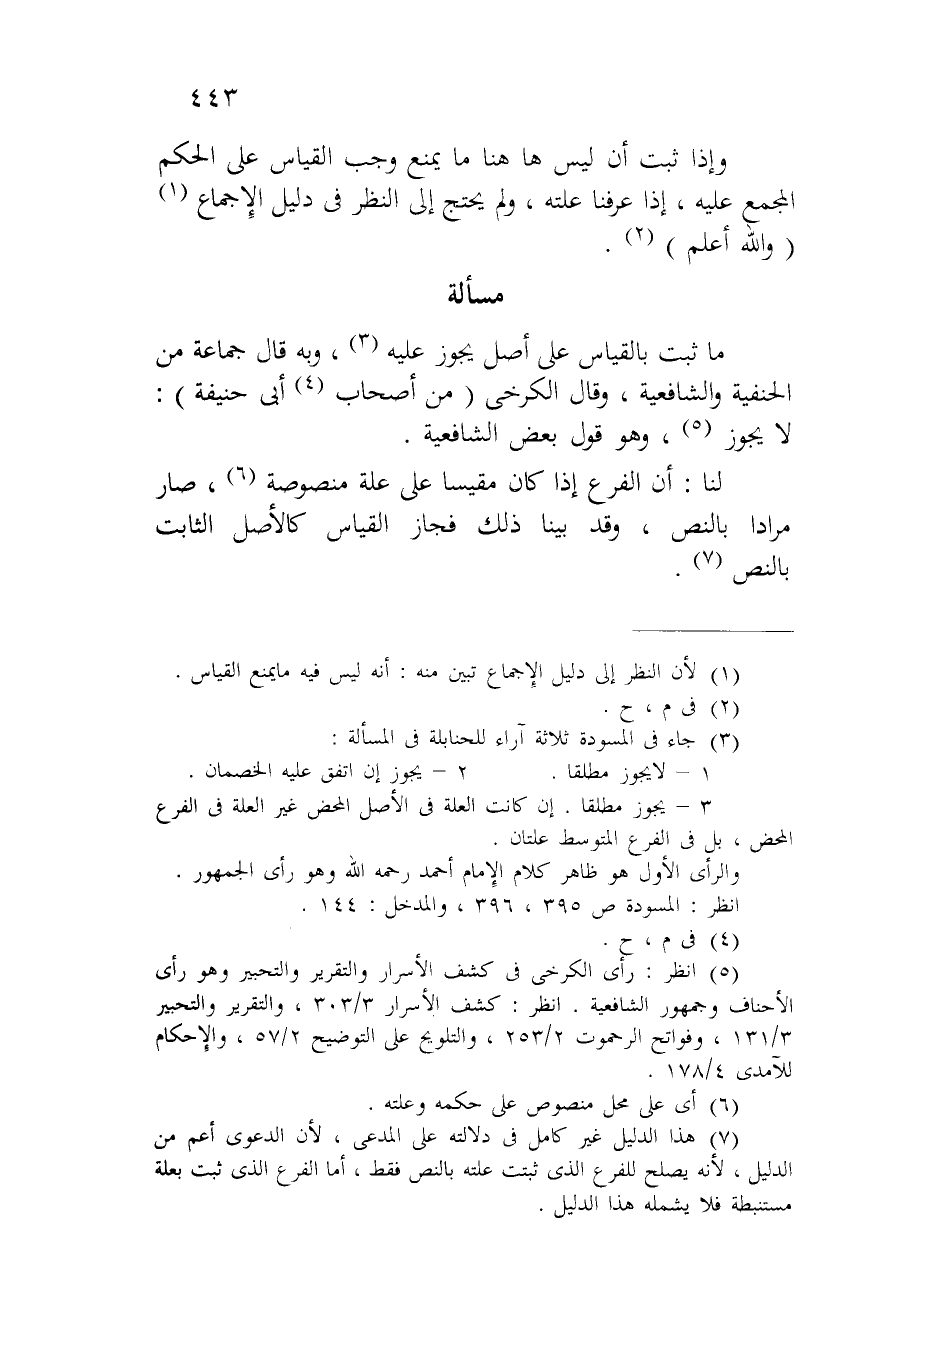 ٤٤٣
وإذا ثبت أن ليس ها هنا ما يمنع وجب القياس على الحكم
المجمع عليه ، إذا عرفنا علته ، ولم يحتج إلى النظر فى دليل الإجماع (١)
( والله أعلم ) (٢) .
مسألة
ما ثبت بالقياس على أصل يجوز عليه (٣) ، وبه قال جماعة من
الحنفية والشافعية ، وقال الكرخى ( من أصحاب (٤) أبى حنيفة ) :
لا يجوز (٥) ، وهو قول بعض الشافعية .
لنا : أن الفرع إذا كان مقيسا على علة منصوصة (٦) ، صار
مرادا بالنص ، وقد بينا ذلك فجاز القياس كالأصل الثابت
بالنص (٧) .
(١) لأن النظر إلى دليل الإجماع تبين منه : أنه ليس فيه مايمنع القياس .
(٢) فى م ، ح .
(٣) جاء فى المسودة ثلاثة آراء للحنابلة فى المسألة :
١ – لايجوز مطلقا . ٢ – يجوز إن اتفق عليه الخصمان .
٣ – يجوز مطلقا . إن كانت العلة فى الأصل المحض غير العلة فى الفرع
المحض ، بل فى الفرع المتوسط علتان .
والرأى الأول هو ظاهر كلام الإمام أحمد رحمه الله وهو رأى الجمهور .
انظر : المسودة ص ٣٩٥ ، ٣٩٦ ، والمدخل : ١٤٤ .
(٤) فى م ، ح .
(٥) انظر : رأى الكرخى فى كشف الأسرار والتقرير والتحبير وهو رأى
الأحناف وجمهور الشافعية . انظر : كشف الأسرار ٣٠٣/٣ ، والتقرير والتحبير
١٣١/٣ ، وفواتح الرحموت ٢٥٣/٢ ، والتلويح على التوضيح ٥٧/٢ ، والإحكام
للآمدى ١٧٨/٤ .
(٦) أى على محل منصوص على حكمه وعلته .
(٧) هذا الدليل غير كامل فى دلالته على المدعى ، لأن الدعوى أعم من
الدليل ، لأنه يصلح للفرع الذى ثبتت علته بالنص فقط ، أما الفرع الذى ثبت بعلة
مستنبطة فلا يشمله هذا الدليل .